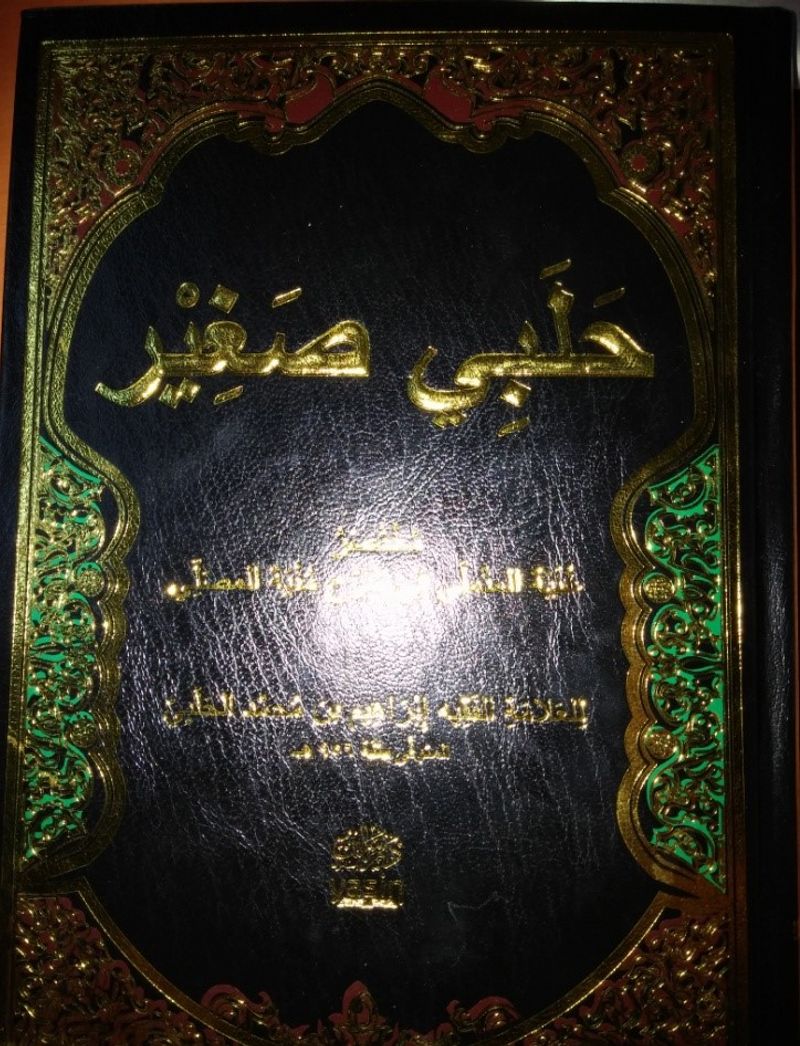 حَلَبِي صَغِيْر
مختصر
غنية المتملي في شرح منية المصلي
للعلامة الفقيه إبراهيم بن محمد الحلبي
المتوفى سنة ٩٥٦ هـ
yasin